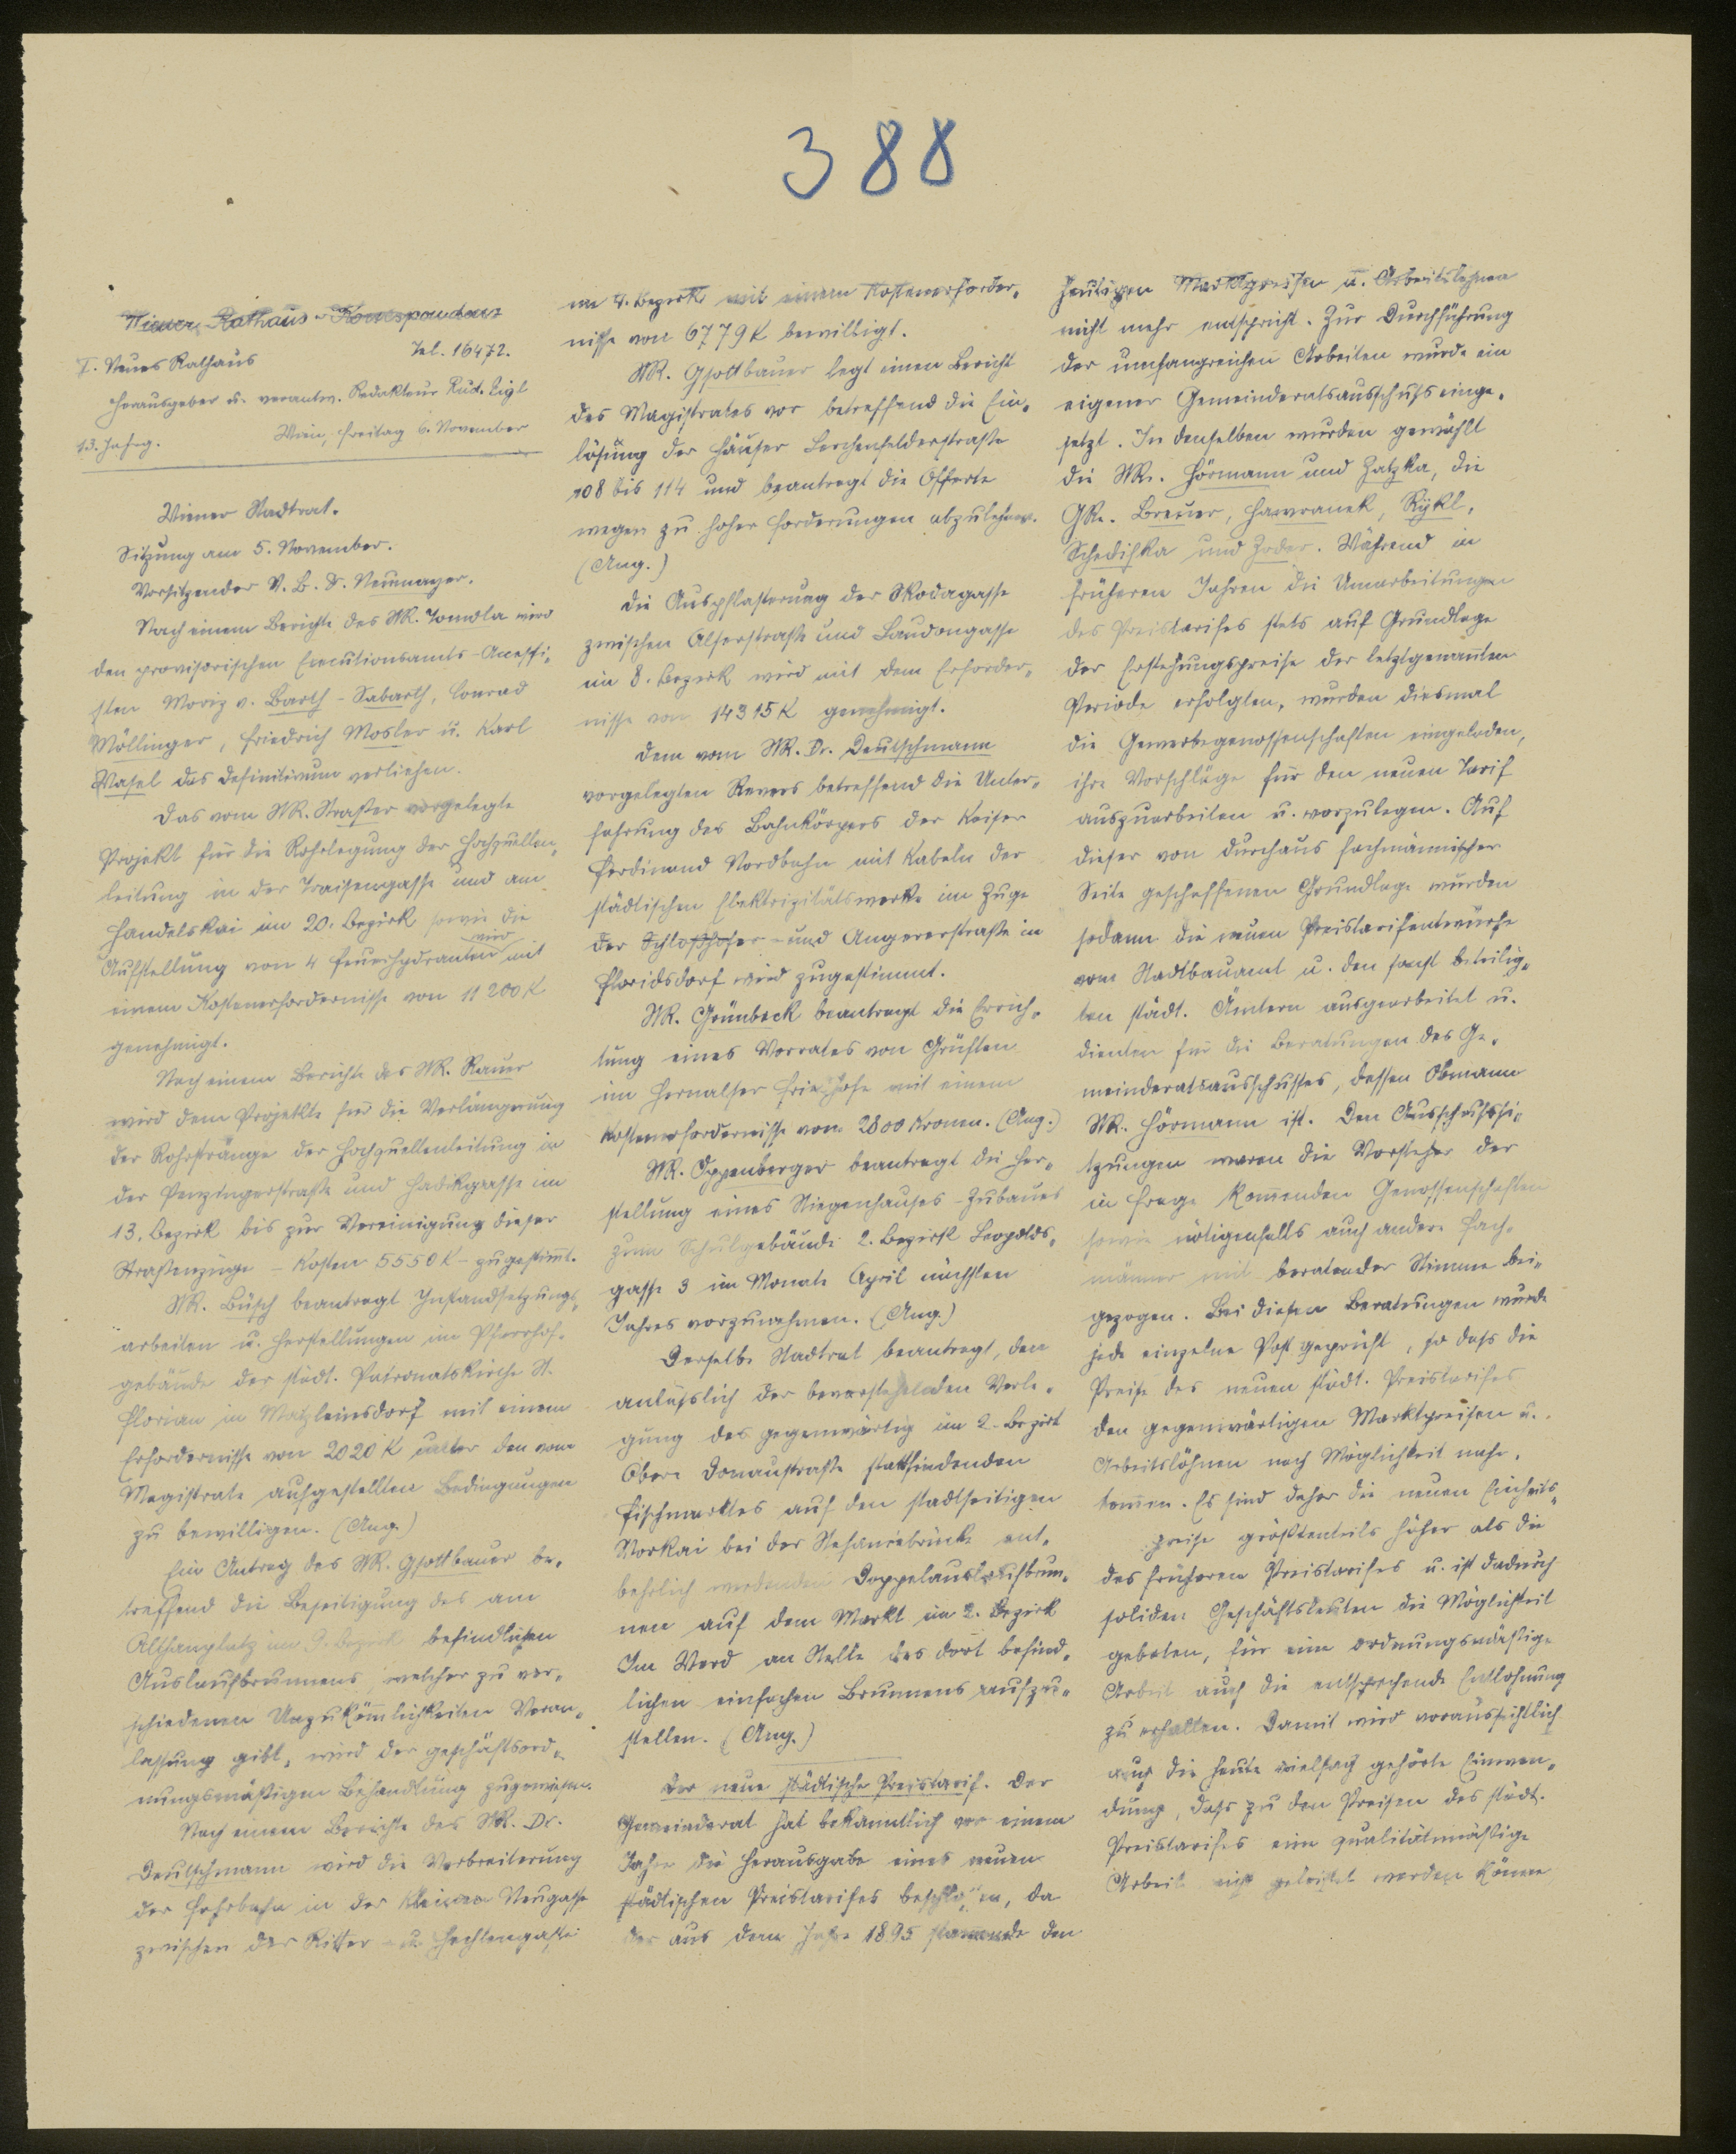 388
Wiener Rathaus-Korrespondenz
I. Neues Rathaus Tel. 16472.
Herausgeber u. verantw. Redakteur Rud. Eigl
13. Jahrg. Wien, Freitag 6. November
Wiener Stadtrat.
Sitzung am 5. November.
Vorsitzender V. B. Dr. Neumayer.
Nach einem Berichte des StR. Tomola wird
den provisorischen Executionsamts-Accessi-
sten Moriz v. Barth-Sabarth, Conrad
Möllinger, Friedrich Mosler u. Karl
Wasel das Definitivum verliehen.
Das vom StR. Straßer vorgelegte
Projekt für die Rohrlegung der Hochquellen-
leitung in der Traisengasse und am
Handelskai im 20. Bezirk sowie die
Aufstellung von 4 Feuerhydranten wird mit
einem Kostenerfordernisse von 11200 K
genehmigt.
Nach einem Berichte des StR. Rauer
wird dem Projekte für die Verlängerung
der Rohrstränge der Hochquellenleitung in
der Penzingerstraße und Hadikgasse im
13. Bezirk bis zur Vereinigung dieser
Straßenzüge - Kosten 5550 K - zugestim̄t.
StR. Büsch beantragt Instandsetzungs-
arbeiten u. Herstellungen im Pfarrhof-
gebäude der städt. Patronatskirche St.
Florian in Matzleinsdorf mit einem
Erfordernisse von 2020 K unter den vom
Magistrate aufgestellten Bedingungen
zu bewilligen. (Ang.)
Ein Antrag des StR. Gsottbauer be-
treffend die Beseitigung des am
Althanplatz im 9. Bezirk befindlichen
Auslaufbrunnens, welcher zu ver-
schiedenen Unzuköm̄lichkeiten Veran-
lassung gibt, wird der geschäftsord-
nungsmäßigen Behandlung zugewiesen.
Nach einem Berichte des StR. Dr.
Deutschmann wird die Verbreiterung
der Fahrbahn in der Kleinen Neugasse
zwischen der Ritter- u. Hechtengasse
im 4. Bezirk mit einem Kostenerforder-
nisse von 6779 K bewilligt.
StR. Gsottbauer legt einen Bericht
des Magistrates vor betreffend die Ein-
lösung der Häuser Lerchenfelderstraße
108 bis 114 und beantragt die Offerte
wegen zu hoher Forderungen abzulehnen.
(Ang.)
Die Auspflasterung der Skodagasse
zwischen Alserstraße und Laudongasse
im 8. Bezirk wird mit dem Erforder-
nisse von 14315 K genehmigt.
Dem vom StR. Dr. Deutschmann
vorgelegten Revers betreffend die Unter-
fahrung des Bahnkörpers der Kaiser
Ferdinand Nordbahn mit Kabeln der
städtischen Elektrizitätswerke im Zuge
der Schloßhofer- und Angererstraße in
Floridsdorf wird zugestimmt.
StR. Grünbeck beantragt die Errich-
tung eines Vorrates von Grüften
im Hernalser Friedhofe mit einem
Kostenerfordernisse von 2800 Kronen. (Ang.)
StR. Oppenberger beantragt die Her-
stellung eines Stiegenhauses-Zubaues
zum Schulgebäude 2. Bezirk Leopolds-
gasse 3 im Monate April nächsten
Jahres vorzunehmen. (Ang.)
Derselbe Stadtrat beantragt, den
anläßlich der bevorstehenden Verle-
gung des gegenwärtig im 2. Bezirk
Obere Donaustraße stattfindenden
Fischmarktes auf den stadtseitigen
Vorkai bei der Stefaniebrücke ent-
behrlich werdenden Doppelauslaufbrun-
nen auf dem Markt im 2. Bezirk
Im Werd an Stelle des dort befind-
lichen einfachen Brunnens aufzu-
stellen. (Ang.)
Der neue städtische Preistarif. Der
Gemeinderat hat bekanntlich vor einem
Jahre die Herausgabe eines neuen
städtischen Preistarifes beschlossen, da
der aus dem Jahre 1895 stammende den
heutigen Marktpreisen u. Arbeitslöhnen
nicht mehr entspricht. Zur Durchführung
der umfangreichen Arbeiten wurde ein
eigener Gemeinderatsausschuß einge-
setzt. In denselben wurden gewählt
die StR. Hörmann und Zatzka, die
GRe. Breuer, Hawranek, Rykl,
Schedifka und Zoder. Während in
früheren Jahren die Umarbeitungen
des Preistarifes stets auf Grundlage
der Erstehungspreise der letztgenan̄ten
Periode erfolgten, wurden diesmal
die Gewerbegenossenschaften eingeladen,
ihre Vorschläge für den neuen Tarif
auszuarbeiten u. vorzulegen. Auf
dieser von durchaus fachmännischer
Seite geschaffenen Grundlage wurden
sodann die neuen Preistarifentwürfe
vom Stadtbauamt u. den sonst beteilig-
ten städt. Ämtern ausgearbeitet u.
dienten für die Beratungen des Ge-
meinderatsausschusses, dessen Obmann
StR. Hörmann ist. Den Ausschußsi-
tzungen waren die Vorsteher der
in Frage kom̄enden Genossenschaften
sowie nötigenfalls auch andere Fach-
männer mit beratender Stimme bei-
gezogen. Bei diesen Beratungen wurde
jede einzelne Post geprüft, so daß die
Preise des neuen städt. Preistarifes
den gegenwärtigen Marktpreisen u.
Arbeitslöhnen nach Möglichkeit nahe-
kom̄en. Es sind daher die neuen Einheits-
preise größtenteils höher als die
des früheren Preistarifes u. ist dadurch
soliden Geschäftsleuten die Möglichkeit
geboten, für eine ordnungsmäßige
Arbeit auch die entsprechende Entlohnung
zu erhalten. Damit wird voraussichtlich
auch die heute vielfach gehörte Einwen-
dung, daß zu den Preisen des städt.
Preistarifes eine qualitätmäßige
Arbeit nicht geleistet werden könne